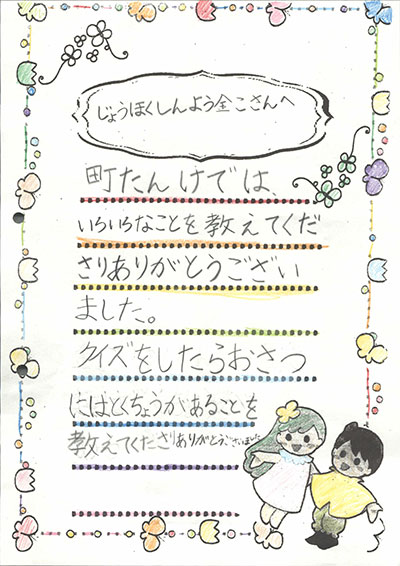 じょうほくしんよう金こさんへ
町たんけでは、
いろいろなことを教えてくだ
さりありがとうござい
ました。
クイズをしたらおさつ
にはとくちょうがあることを
教えてくださりありがとうございました